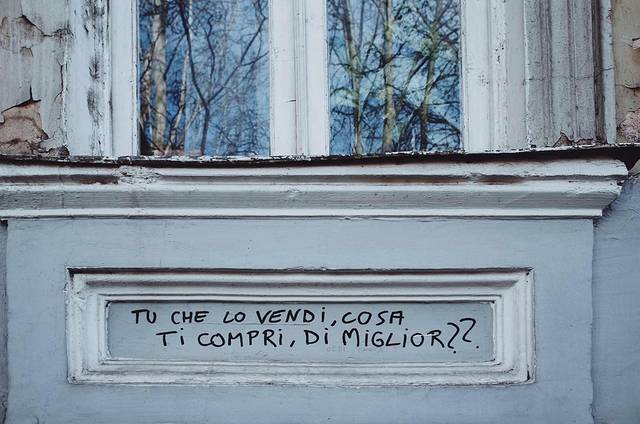 TU CHE LO VENDI, COSA
TI COMPRI, DI MIGLIOR??.